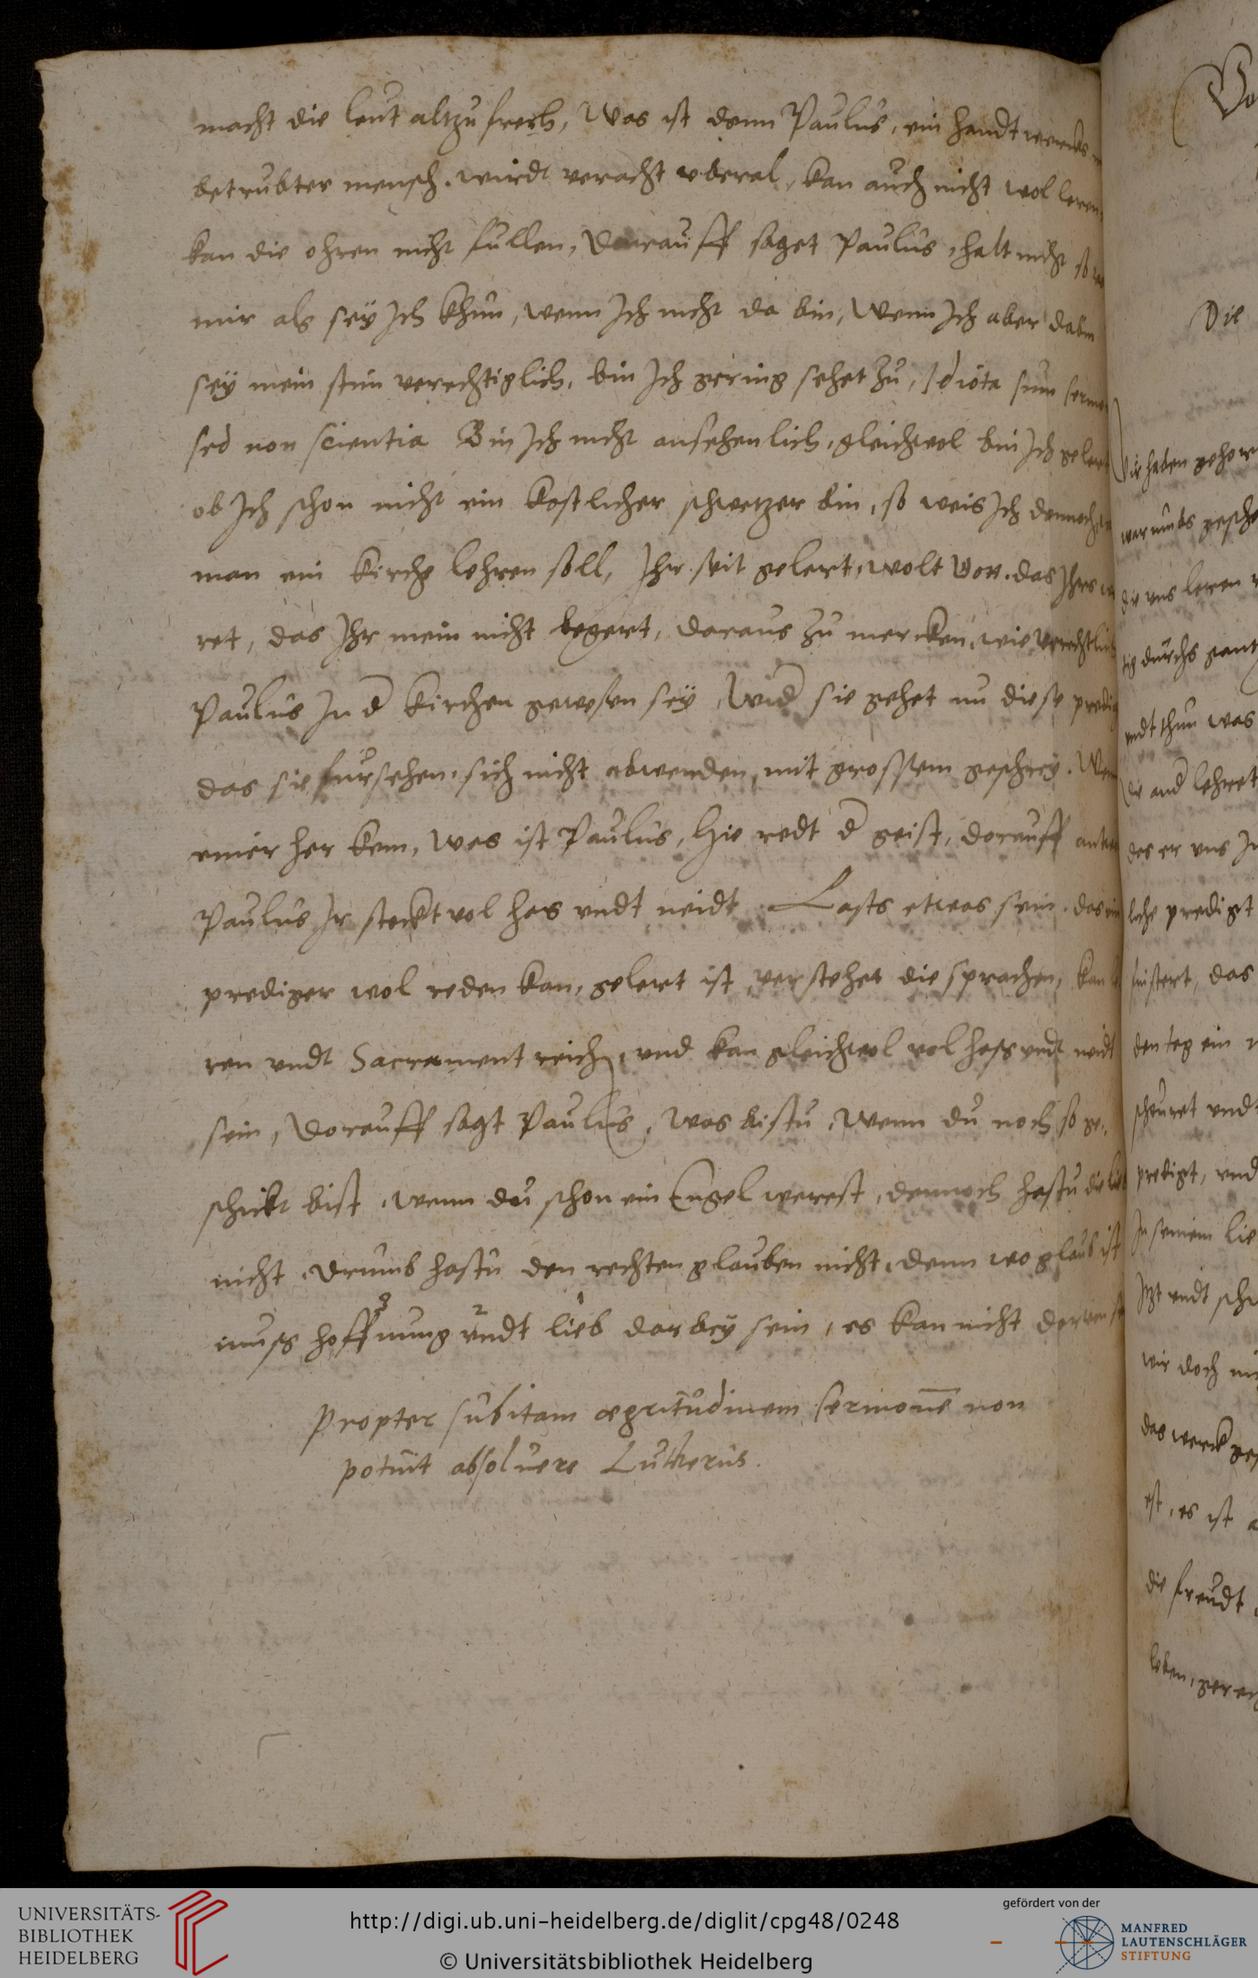 macht die leut altzu frech, Was ist denn Paulus, ein handt wercks
betrubter mensch. wirdt veracht vberal, kan auch nicht wol leren,
kan die ohren nicht fullen, Darauff saget Paulus, halt nicht so
mir als seÿ Ich khun, wenn Ich nicht da bin, Wenn Ich aber
seÿ mein stim verechtiglich, bin Ich gering sehet zu, Idiota sum
sed non scientia Bin Ich nicht ansehenlich, gleichwol bin Ich
ob Ich schon nicht ein kostlicher schwetzer bin, so weis Ich dennoch
man ein kirche lehren soll, Ihr seit gelert, wolt das Ihrs
ret, das Ihr mein nicht begert, daraus zu mercken, wie verechtlich
Paulus In d kirchen gewesen seÿ, Wid sie gehet nu diese
das sie fursehen, sich nicht abwenden, mit grossem geschreÿ.
einer her kem, was ist Paulus, Hie redt d geist, dorauff
Paulus Ir steckt vol has vndt neidt. Lasts etwas sein, das ein
prediger wol reden kan, gelert ist, verstehet die sprachen, kan
ren vndt Sacrament reich, vnd kan gleichwol vol hass vndt neidt
sein, Dorauff sagt Paulus, was bistu, wenn du noch so ge,
schickt bist, wenn du schon ein Engel werest, dennoch hastu die
nicht, Drumb hastu den rechten glauben nicht, denn wo glaub ist
3 2 1
muss hoffnung vndt lieb darbeÿ sein, es kan nicht
Propter subitam ægritudinem sermonē non
potuit absoluere Lutherus.
Die
haben
warumbs
die vns leren
durchs
vndt thun was
die and lehret
das er vns In
prediget
das
den tag ein
vndt
predigt, vnd
In seinem
vndt
wir doch
das werck
ist, es ist
die freudt
leben,
UNIVERSITÄTS-
BIBLIOTHEK
HEIDELBERG
http://digi.ub.uni-heidelberg.de/diglit/cpg48/0248
© Universitätsbibliothek Heidelberg
gefördert von der
MANFRED
LAUTENSCHLÄGER
STIFTUNG